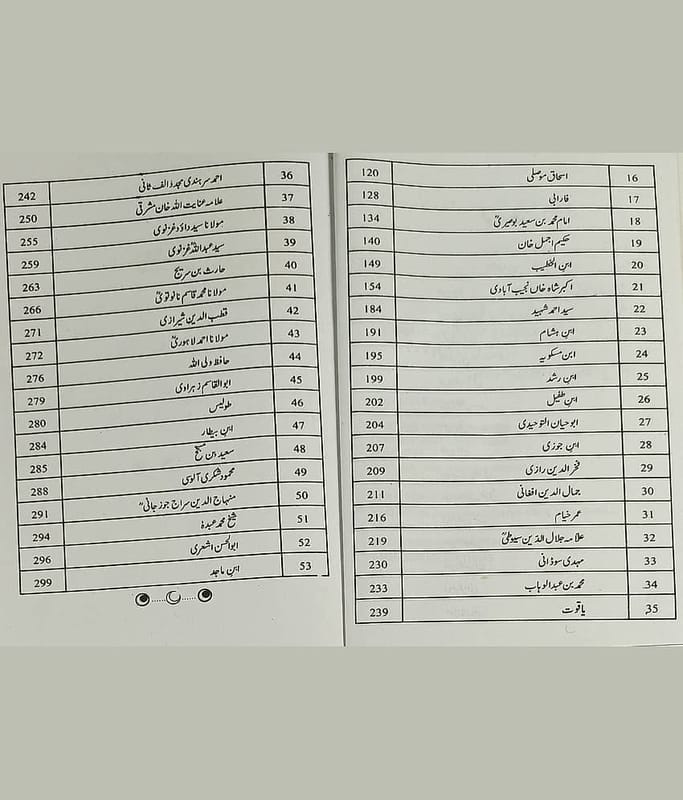 16 اسحاق موصلی 120
17 فارابی 128
18 امام محمد بن سعید بوصیریؒ 134
19 حکیم اجمل خان 140
20 ابن الخطیب 149
21 اکبر شاہ خاں نجیب آبادی 154
22 سید احمد شہید 184
23 ابن ہشام 191
24 ابن مسکویہ 195
25 ابن رشد 199
26 ابن طفیل 202
27 ابو حیان التوحیدی 204
28 ابن جوزی 207
29 فخر الدین رازی 209
30 جمال الدین افغانی 211
31 عمر خیام 216
32 علامہ جلال الدین سیوطیؒ 219
33 مہدی سوڈانی 230
34 محمد بن عبدالوہاب 233
35 یاقوت 239
36 احمد سرہندی مجدد الف ثانی 242
37 علامہ عنایت اللہ خان مشرقی 250
38 مولانا سید داؤد غزنوی 255
39 سید عبداللہ غزنوی 259
40 حارث بن سریج 263
41 مولانا محمد قاسم نانوتویؒ 266
42 قطب الدین شیرازی 271
43 مولانا احمد لاہوریؒ 272
44 حافظ ولی اللہ 276
45 ابوالقاسم زہراوی 279
46 طولیس 280
47 ابن بیطار 284
48 سعید بن 285
49 محمود شکری آلوسی 288
50 منہاج الدین سراج جوزجانیؒ 291
51 شیخ محمد عبدہٗ 294
52 ابوالحسن اشعری 296
53 ابن ماجد 299